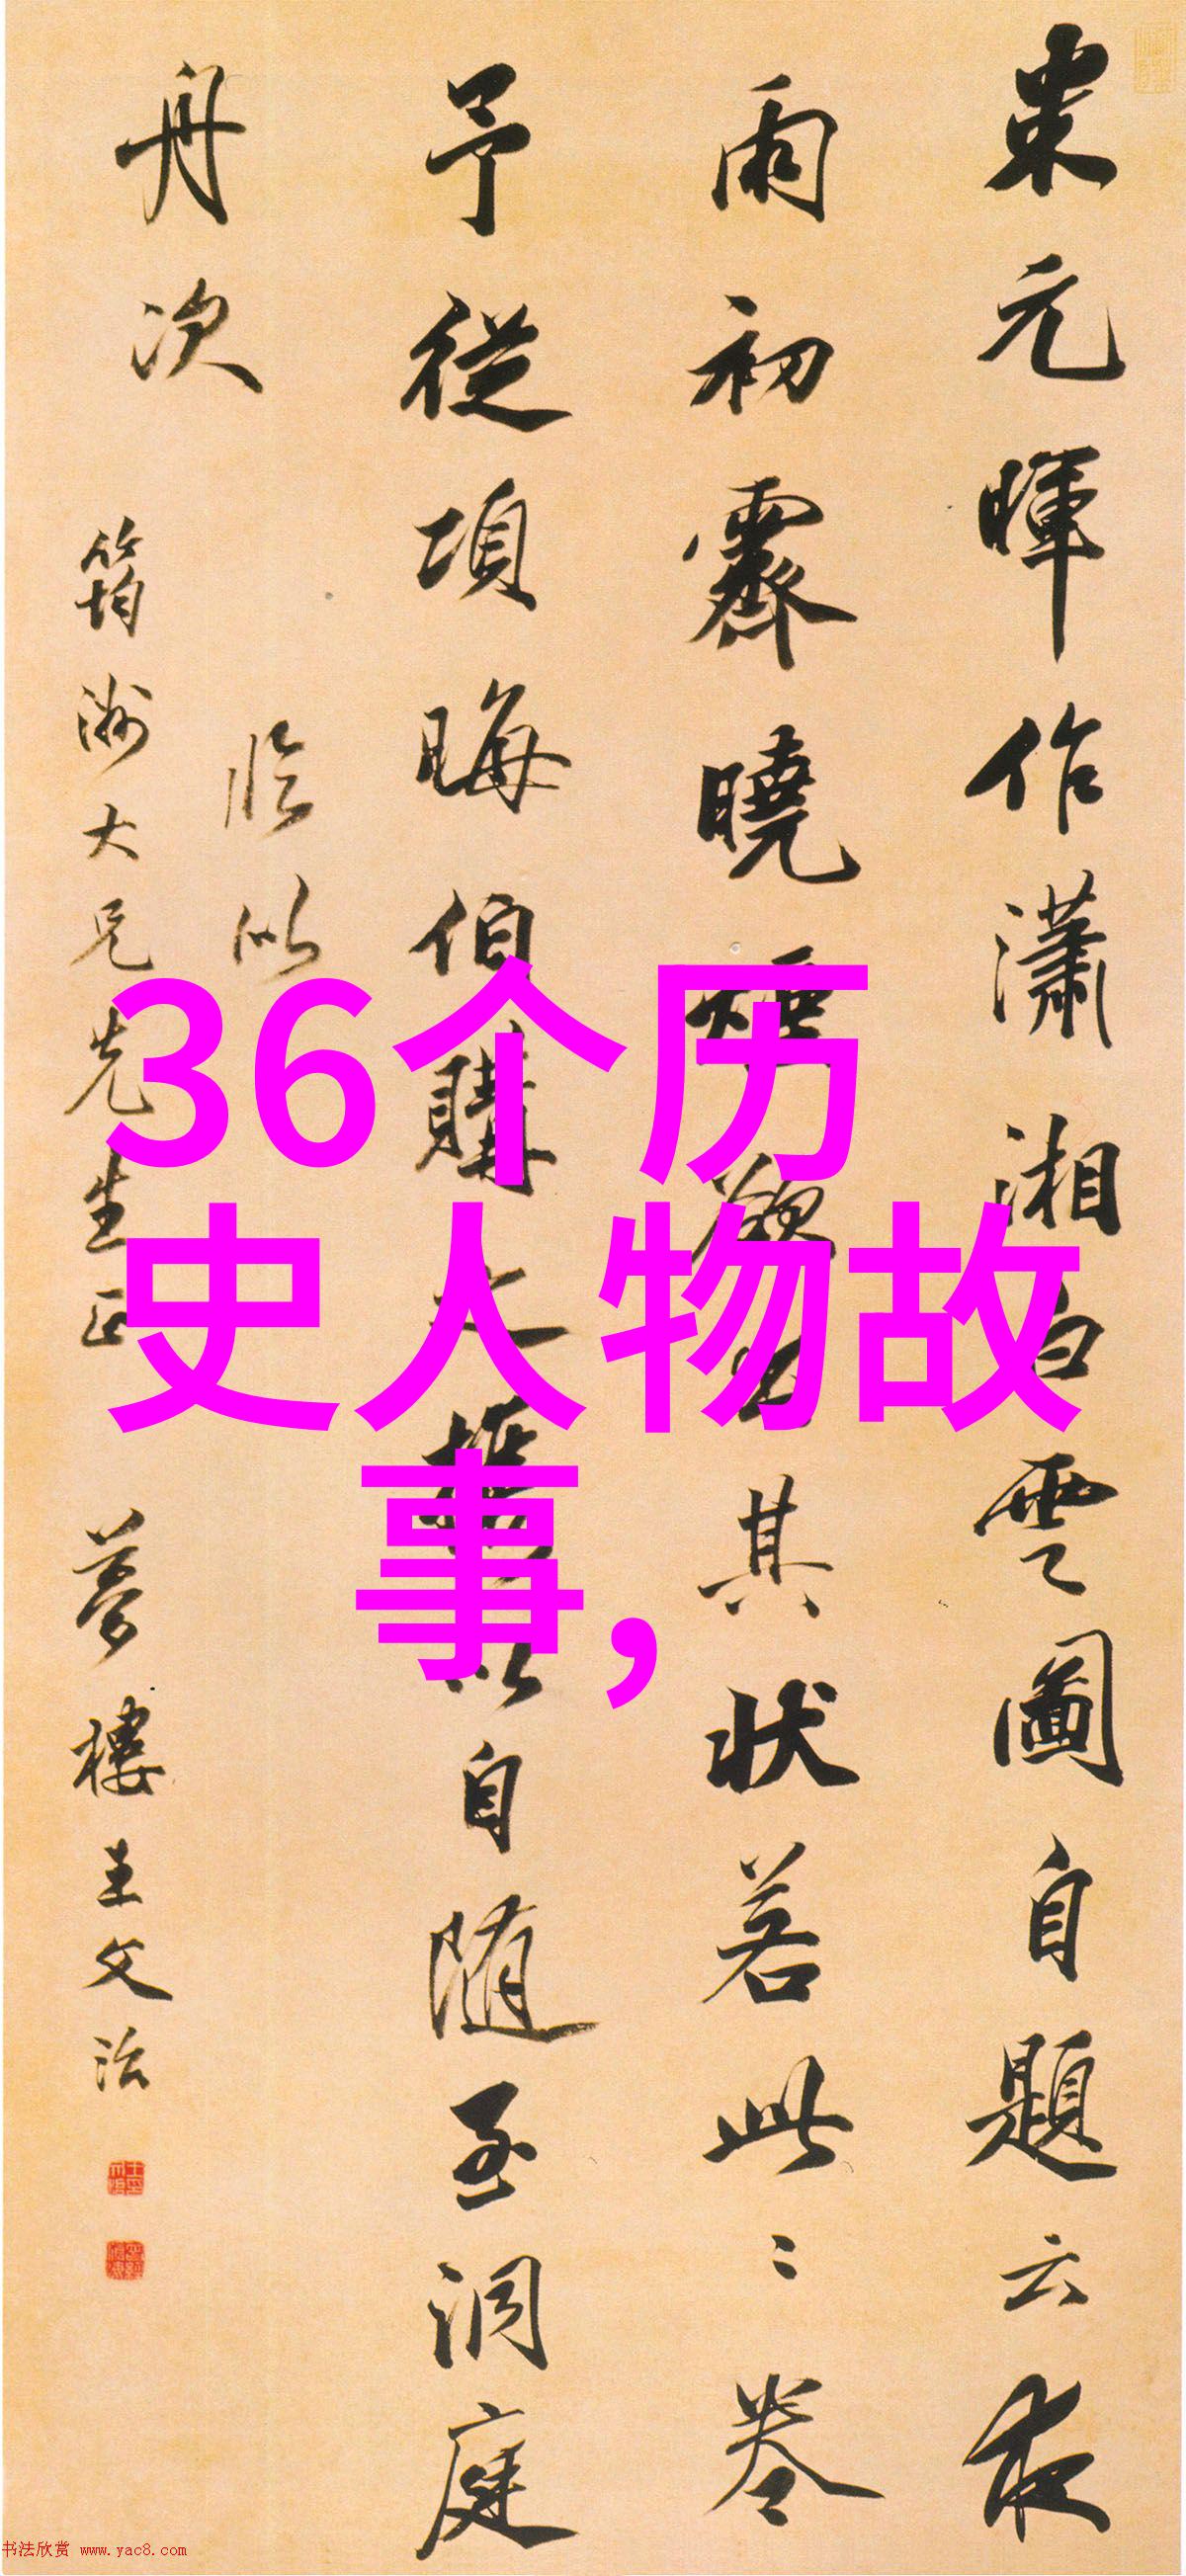 米元暉作瀟湘白雲圖自題云夜
雨初霽曉煙欲出其狀若此此卷
予從項晦伯購之携以自随至洞庭
舟次
臨似
筠洲大兄先生正
夢樓王文治
36个历
史人物故
事,
书法欣赏 www.yac8.com